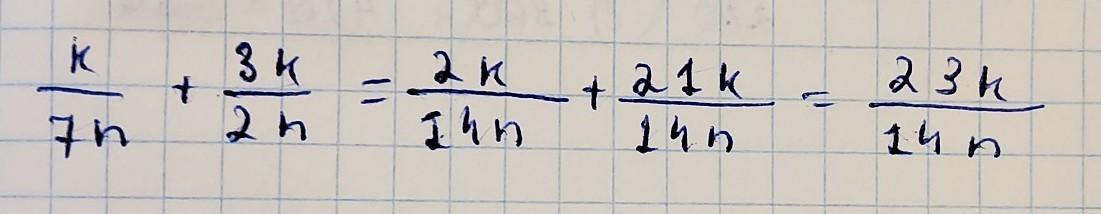 k/7n + 3k/2n = 2k/14n + 21k/14n = 23k/14n